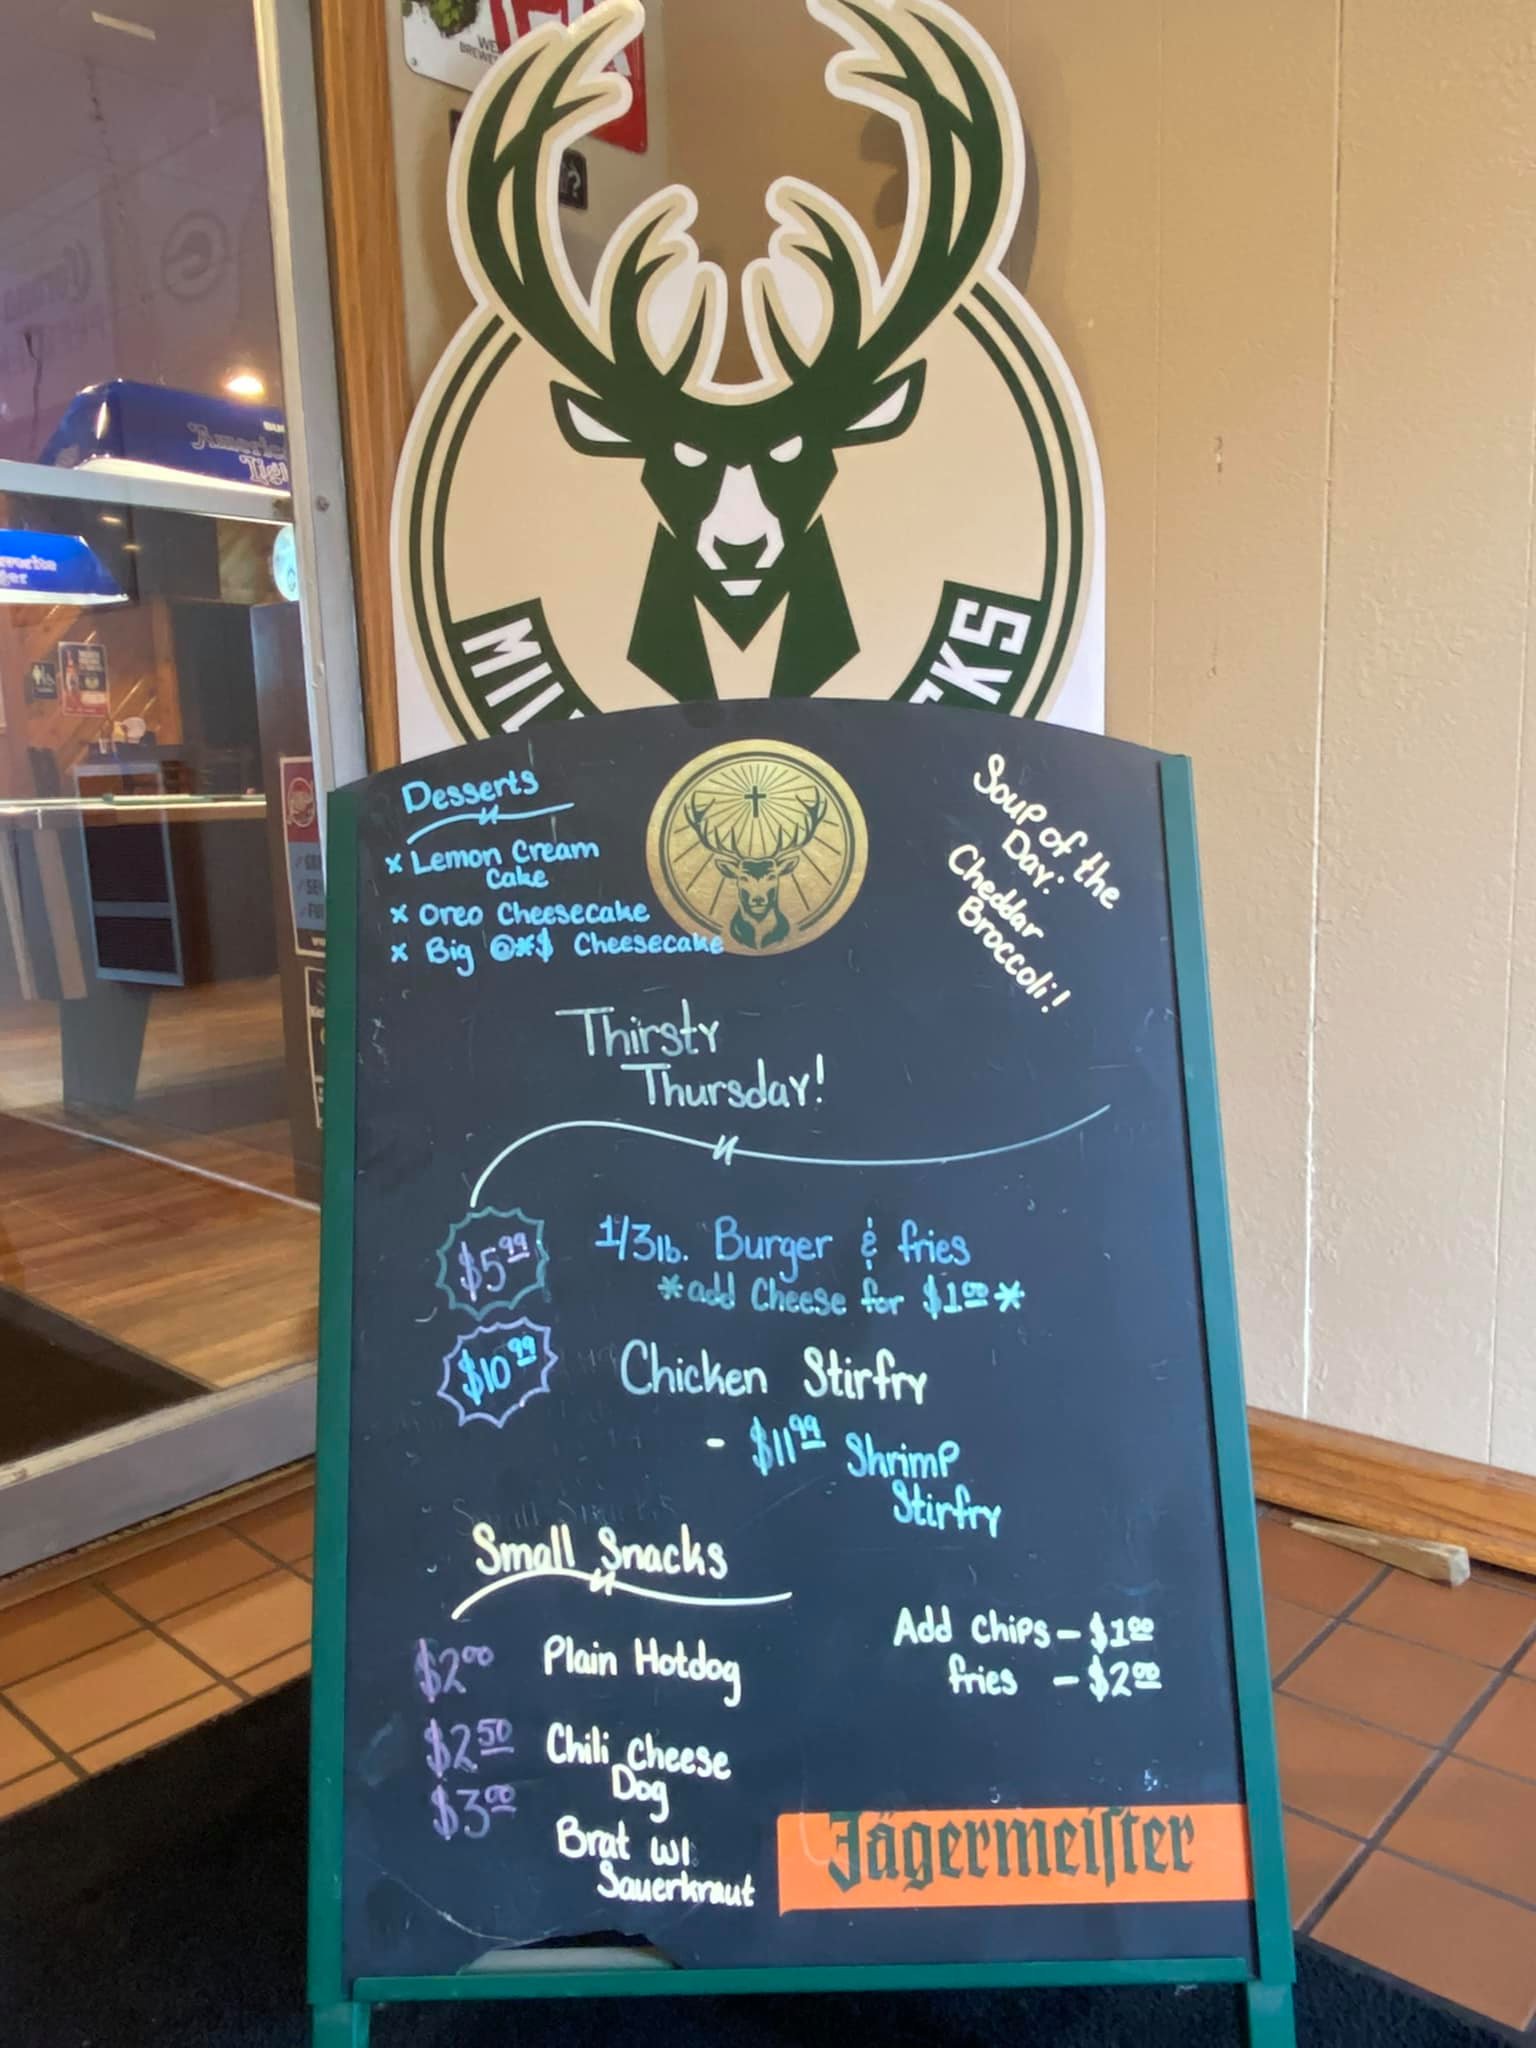 WE
BREWE
?
MIL
CKS
Desserts
x Lemon Cream
Cake
x Oreo Cheesecake
x Big @*$ Cheesecake
Soup of the
Day:
Cheddar
Broccoli!
Thirsty
Thursday!
$5.99 1/3 lb. Burger & fries
*add Cheese for $1.00*
$10.99 Chicken Stirfry
- $11.99 Shrimp
Stirfry
Small Snacks
$2.00 Plain Hotdog
Add Chips - $1.00
fries - $2.00
$2.50 Chili Cheese
Dog
$3.00 Brat w/
Sauerkraut
Jägermeiſter